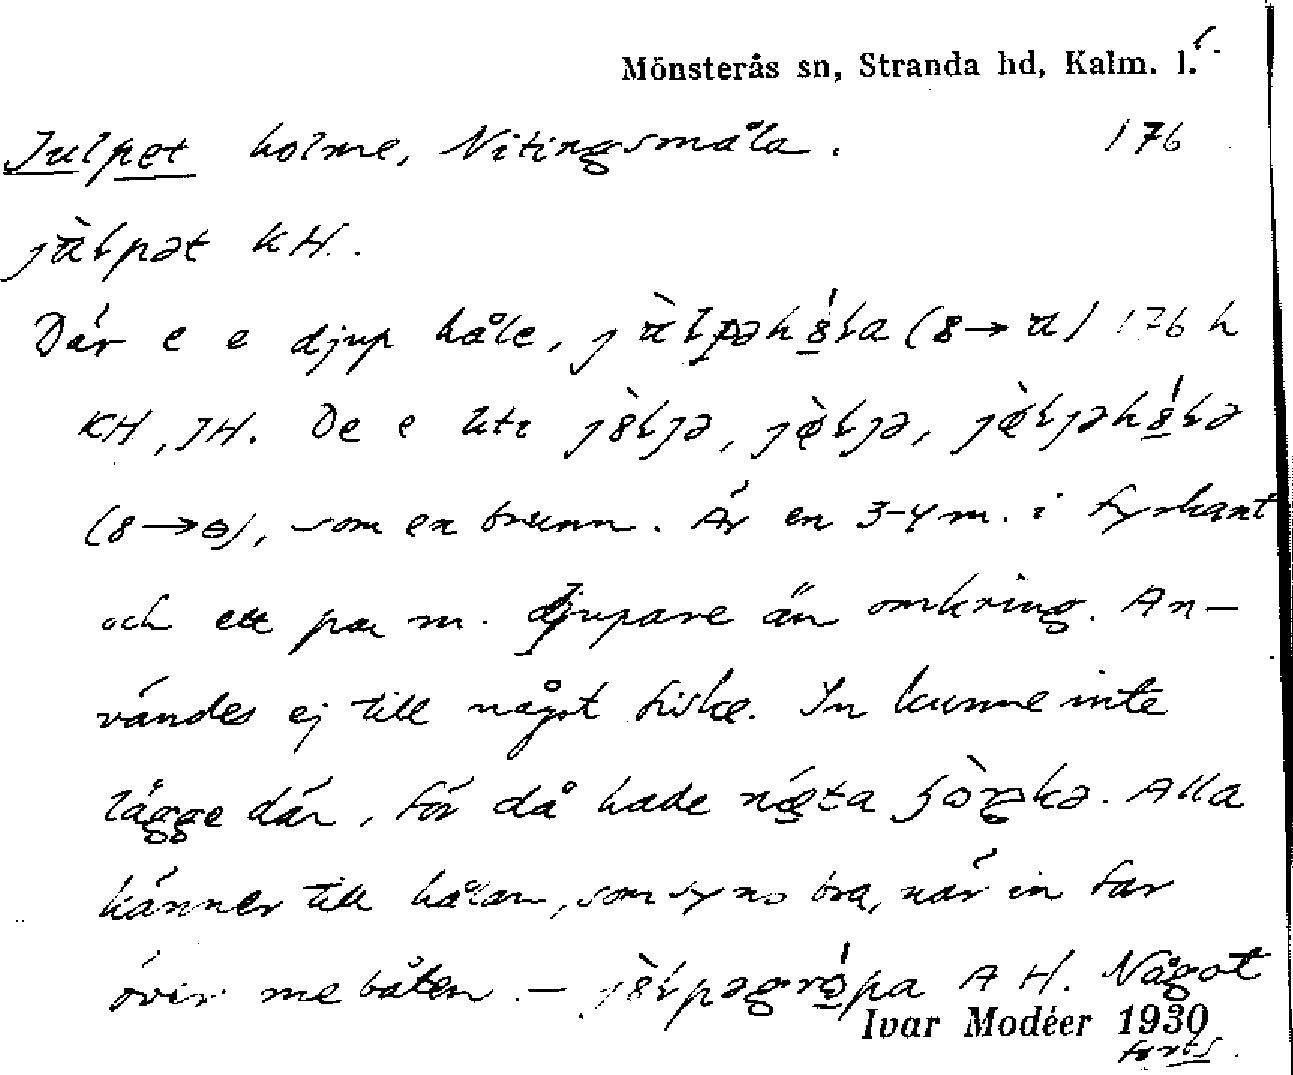 Mönsterås sn, Stranda hd, Kalm. l.
Julpet holme, Nitingsmåla. 176
KH.
Där e e djup håle, 176 h
KH, JH. De e
som en brunn. Är en 3-4 m. i fyrkant
och ett par m. djupare än omkring. An-
vändes ej till något fiske. In kunne inte
lägge där, för då hade
Alla
känner till hålan, som syns bra, när in far
över me båten. — AH. Något
Ivar Modéer 1930
forts.